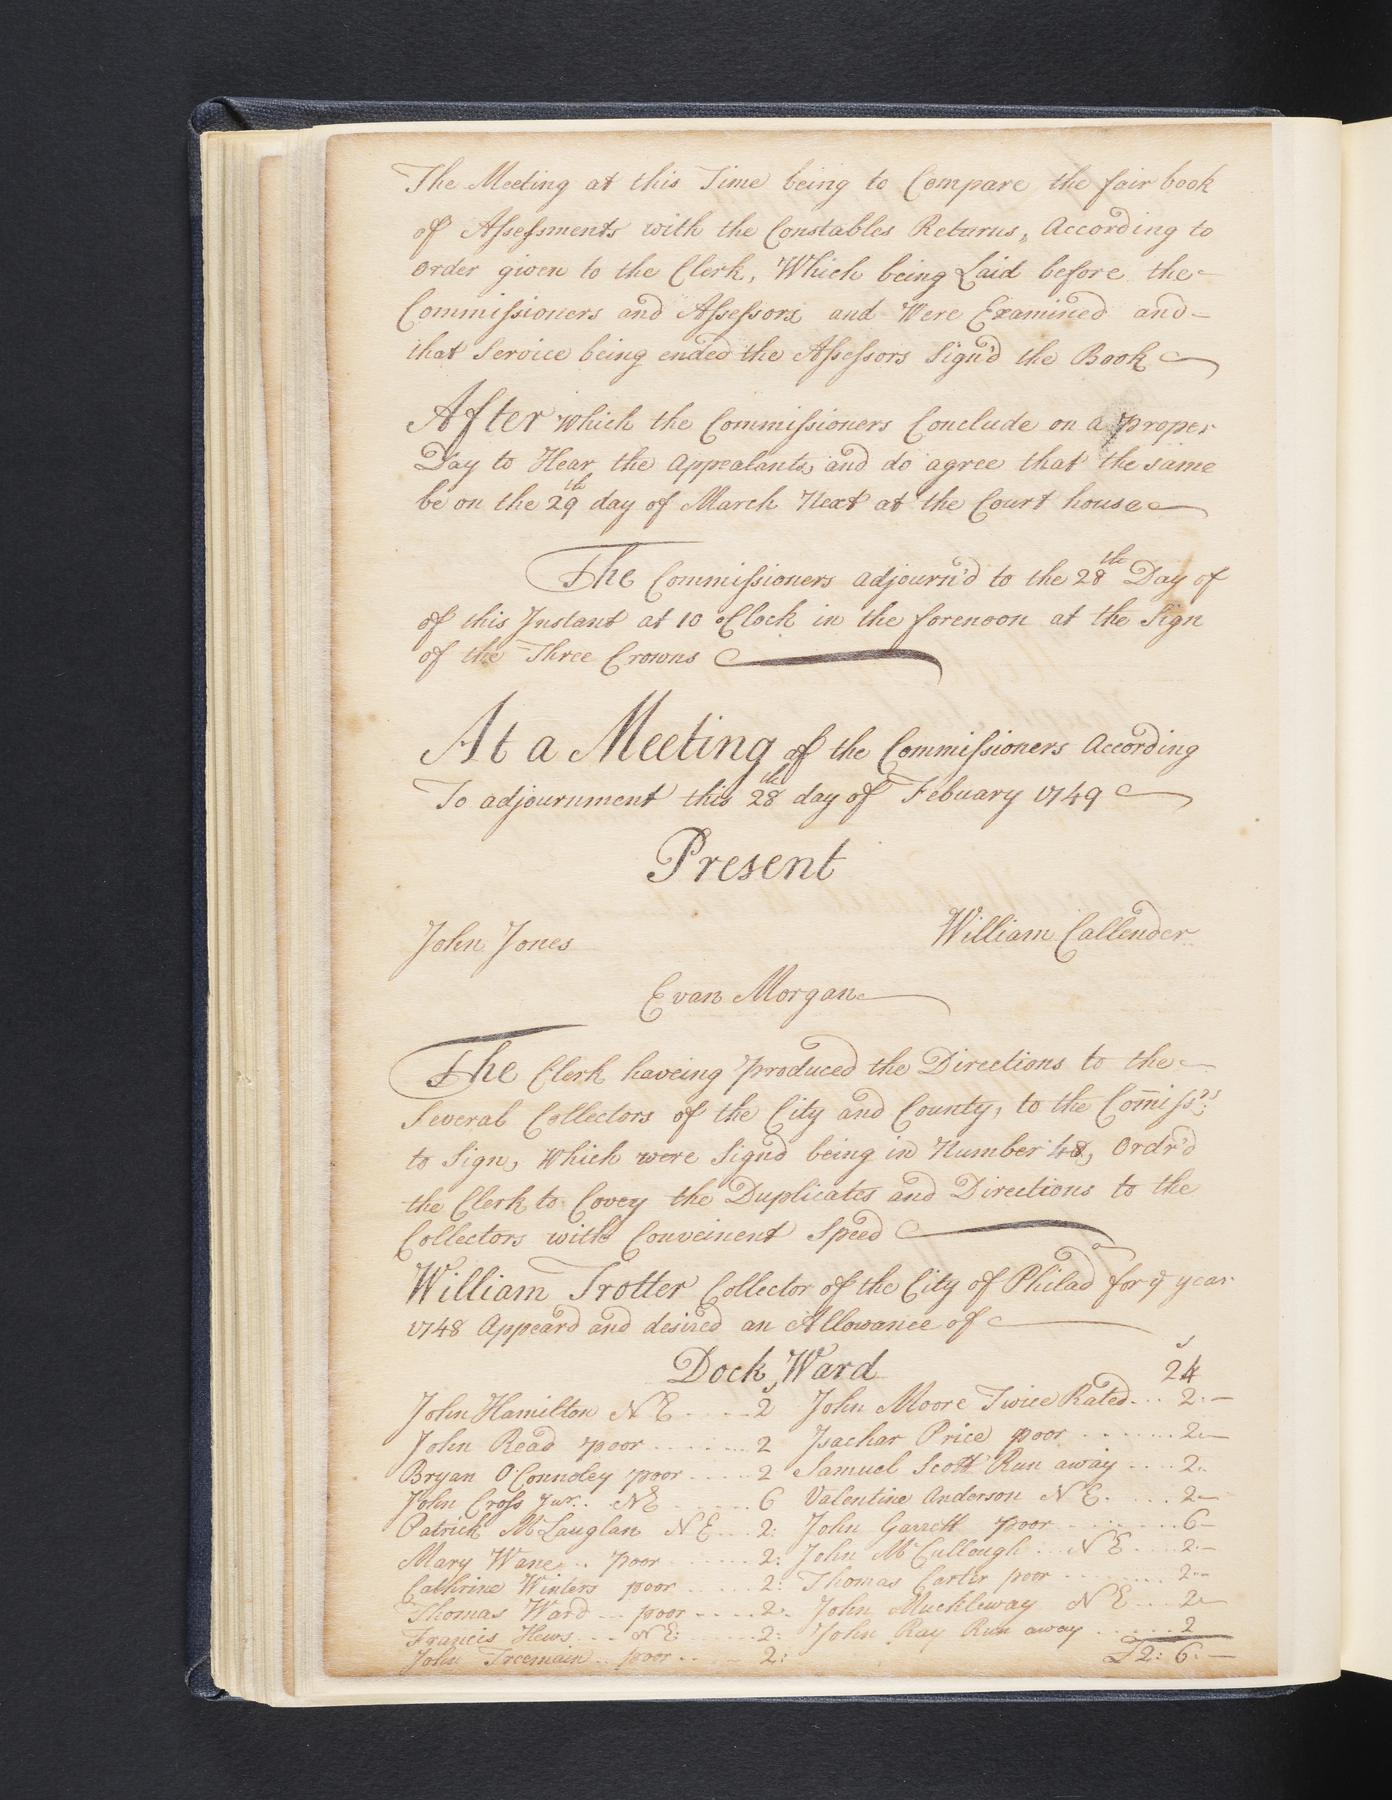 The Meeting at this Time being to Compare the fair book
of Assessments with the Constables Returns, According to
order given to the Clerk, Which being Laid before the
Commissioners and Assessors and Were Examined and
that Service being ended the Assessors Sign'd the Book
After which the Commissioners Conclude on a proper
Day to Hear the Appealants, and do agree that the same
be on the 29th day of March Next at the Court house
The Commissioners adjourn'd to the 28th Day of
of this Instant at 10 oClock in the forenoon at the Sign
of the Three Crowns
At a Meeting of the Commissioners According
To adjournment this 28th day of Febuary 1749
Present
John Jones William Callender
Evan Morgan
The Clerk haveing produced the Directions to the
Several Collectors of the City and County, to the Comiss.rs
to Sign, Which were Signd being in Number 48, Ordr'd
the Clerk to Covey the Duplicates and Directions to the
Collectors with Conveinent Speed
William Trotter Collector of the City of Philad for ye year
1748 Appeard and desired an Allowance of
Dock Ward s 24
John Hamilton N E .... 2 John Moore Twice Rated... 2.—
John Read poor ....... 2 Isachar Price poor ....... 2.—
Bryan O'Connoley poor ..... 2 Samuel Scott Run away .... 2.
John Cross Junr.. N E ...... 6 Valentine Anderson N E. .... 2—
Patrick McLauglan N E... 2: John Garrett poor ........ 6—
Mary Wane... poor ....... 2: John McCullough ... N E .... 2.—
Cathrine Winters poor ..... 2: Thomas Carter poor ......... 2.—
Thomas Ward ... poor ..... 2. John Muckleway N E ... 2—
Francis Hews.... N E. ....... 2: John Ray Run away ....... 2
John Treemain .. poor .. .. 2: £2: 6. —